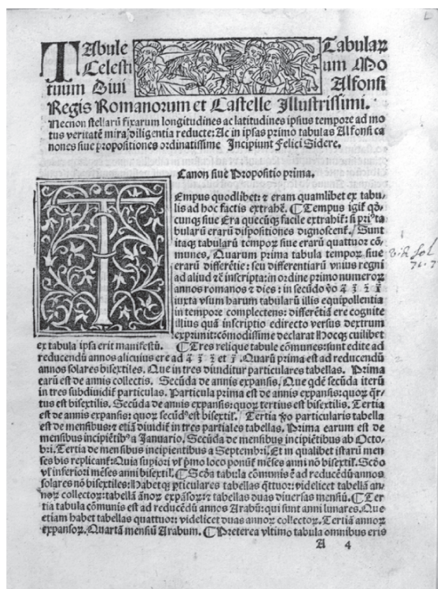 TAbule Tabulaꝝ
Celesti um Mo
tiuum Diui Alfonsi
Regis Romanorum et Castelle Illustrissimi.
Necnon stellarũ fixarum longitudines ac latitudines ipsius tempore ad mo
tus veritatẽ mira diligentia reducte: Ac in ipsas primo tabulas Alfonsi ca
nones siue propositiones ordinatissime Incipiunt Felici Sidere.
Canon siue Propositio prima.
TEmpus quodlibet: ⁊ eram quamlibet ex tabu
lis ad hoc factis extrahẽ. ¶ Tempus igit̃ qđ
cunqꝫ siue Era quecũqꝫ facile extrahit̃: si
tabularũ erarũ dispositiones dignoscent̃. Sunt
itaqꝫ tabularũ tempoꝝ siue erarũ quattuor cõ
munes, Quarum prima tabula tempoꝝ siue
erarũ differẽtie: seu differentiarũ vnius regni
ad aliud ⁊ẽ inscripta: in ordine primo numeroꝝ
annos romanos ⁊ dies: in secũdo ỹo q̃ ȝ̃ ȝ̃
iuxta vsum harum tabularũ illis equipollentia
in tempore complectens: differẽtiã ere cognite
illius quã inscriptio edirecto versus dextrum
exprimit: cõmodissime declarat Hocqꝫ cuilibet
ex tabula ipsa erit manifestũ. ¶ Tres relique tabule cõmunes: sunt edite ad
reducendũ annos alicuius ere ad q̃ ȝ̃ ȝ̃ et ȝ̃. Quarũ prima est ad reducendũ
annos solares bisextiles. Que in tres diuiditur particulares tabellas. Prima
earũ est de annis collectis. Secũda de annis expansis. Que qđẽ secũda iterũ
in tres subdiuidit̃ particulas. Particula prima est de annis expansis: quoꝝ q̃r
tus est bisextilis. Secũda de annis expansis: quoꝝ tertius est bisextilis. Tertia
est de annis expansis: quoꝝ secũdꝰ est bisextilꝭ. Tertia ỹo particularis tabella
est de mensibus: ⁊ etiã diuidit̃ in tres partiales tabellas. Prima earum est de
mensibus incipiẽtibꝰ a Januario. Secũda de mensibus incipiẽtibus ab Octo
bri. Tertia de mensibus incipientibus a Septembri. Et in qualibet istarũ men
ses bis replicant̃: Quia supiori vl̃ pmo loco ponũt̃ mẽses anni nõ bisextil̃. Scđo
vl̃ inferiori mẽses anni bisextil̃. ¶ Scđa tabl̃a cõmunis ẽ ad reducẽdũ annos
solares nõ bisextiles: habetqꝫ pticulares tabellas q̃ttuor: videlicet tabellã an
noꝝ collectoꝝ: tabellã ãnoꝝ expãsoꝝ: ⁊ tabellas duas diuersas mensiũ. ¶ Ter
tia tabula cõmunis est ad reducẽdũ annos Arabũ: qui sunt anni lunares. Que
etiam habet tabellas quattuor: videlicet duas annoꝝ collectoꝝ. Tertiã annoꝝ
expansoꝝ. Quartã mensiũ Arabum. ¶ Preterea vltimo tabula omnibus eris
A 4